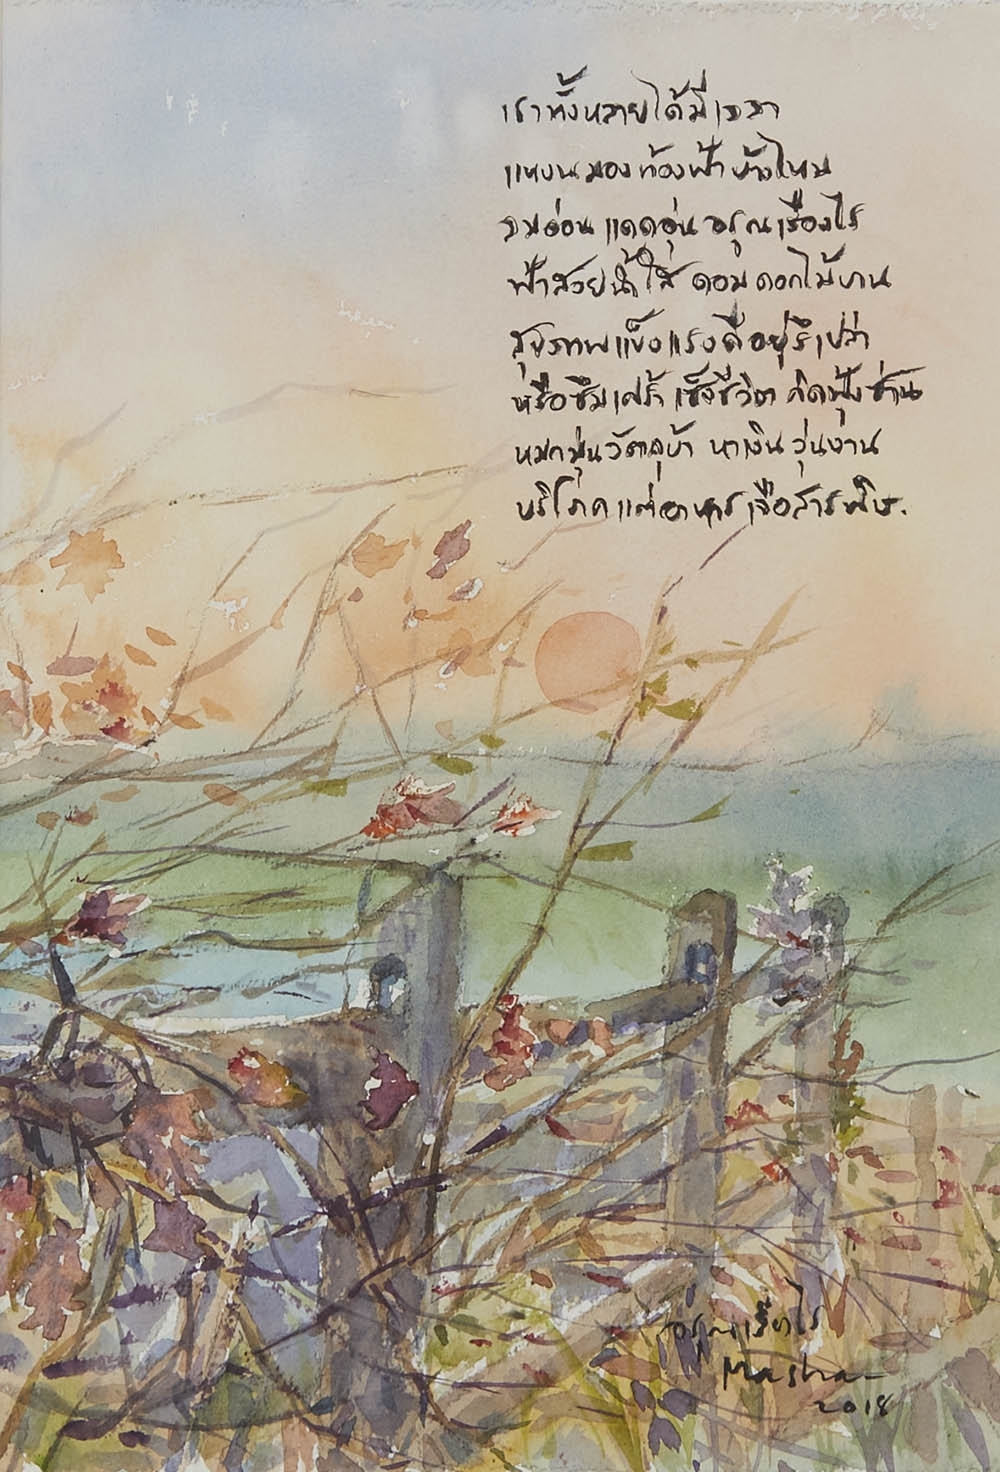 เราทั้งหลายได้มีเวลา
แหงนมองท้องฟ้าบ้างไหม
ลมอ่อน แดดอุ่น อรุณเรืองไร
ฟ้าสวยน้ำใส ดอมดอกไม้บาน
สุขภาพแข็งแรงดีอยู่รึเปล่า
หรือซึมเศร้า เซ็งชีวิต คิดฟุ้งซ่าน
หมกมุ่นวัตถุบ้า หาเงินวุ่นงาน
บริโภคแต่อาหารเจือสารพิษ.
อรุณเรืองไร
Masha
2018